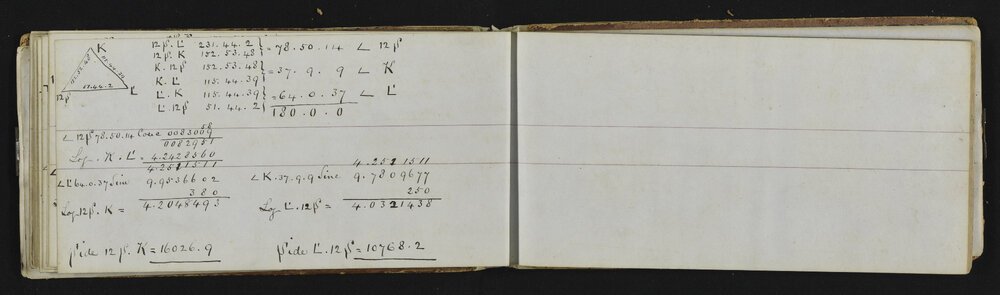 K
12β L
12β. L 231.44.2 } = 78.50.14 ∠ 12β
12β. K 152.53.48
K. 12β 152.53.48 } = 37.9.9 ∠ K
K. L 115.44.39
L. K 115.44.39 } = 64.0.37 ∠ L
L. 12β 51.44.2 180.0.0
∠ 12β 78.50.14 Cosec 0083009
58
0082951
Log. K. L = 4.2428560
4.2511511
∠ L 64.0.37 Sine 9.9536602
380
Log 12β. K = 4.2048493
4.2511511
∠ K. 37.9.9 Sine 9.7809677
250
Log L. 12β = 4.0321438
Side 12β. K = 16026.9
Side L. 12β = 10768.2